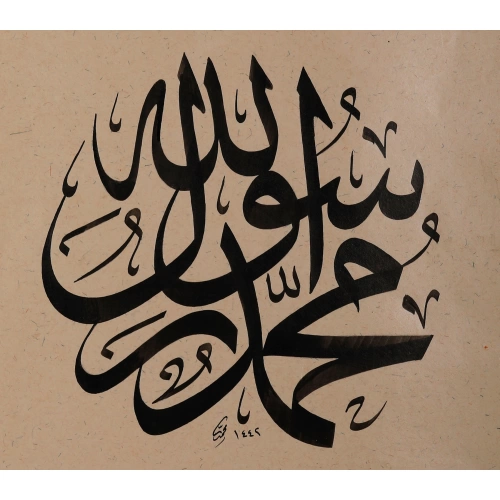 محمد رسول الله
١٤٤٢